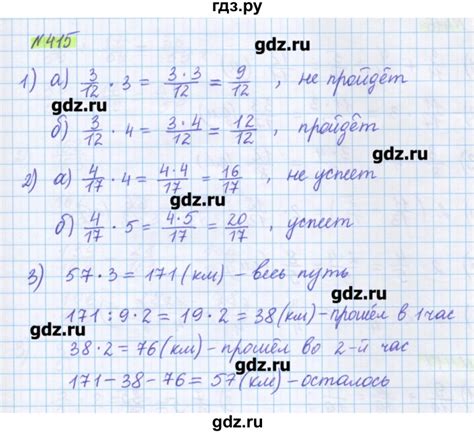 гдз.ру
№415
gdz.ru
1) а) 3/12 · 3 = 3·3/12 = 9/12 , не пройдёт
gdz.ru gdz.ru
б) 3/12 · 4 = 3·4/12 = 12/12 , пройдёт
gdz.ru
2) а) 4/17 · 4 = 4·4/17 = 16/17 , не успеет
gdz.ru
б) 4/17 · 5 = 4·5/17 = 20/17 , успеет
gdz.ru
3) 57 · 3 = 171 (км) – весь путь
gdz.ru
171 : 9 · 2 = 19 · 2 = 38 (км) – прошёл в 1 час
gdz.ru
38 · 2 = 76 (км) – прошёл во 2-й час
gdz.ru
171 – 38 – 76 = 57 (км) – осталось
gdz.ru